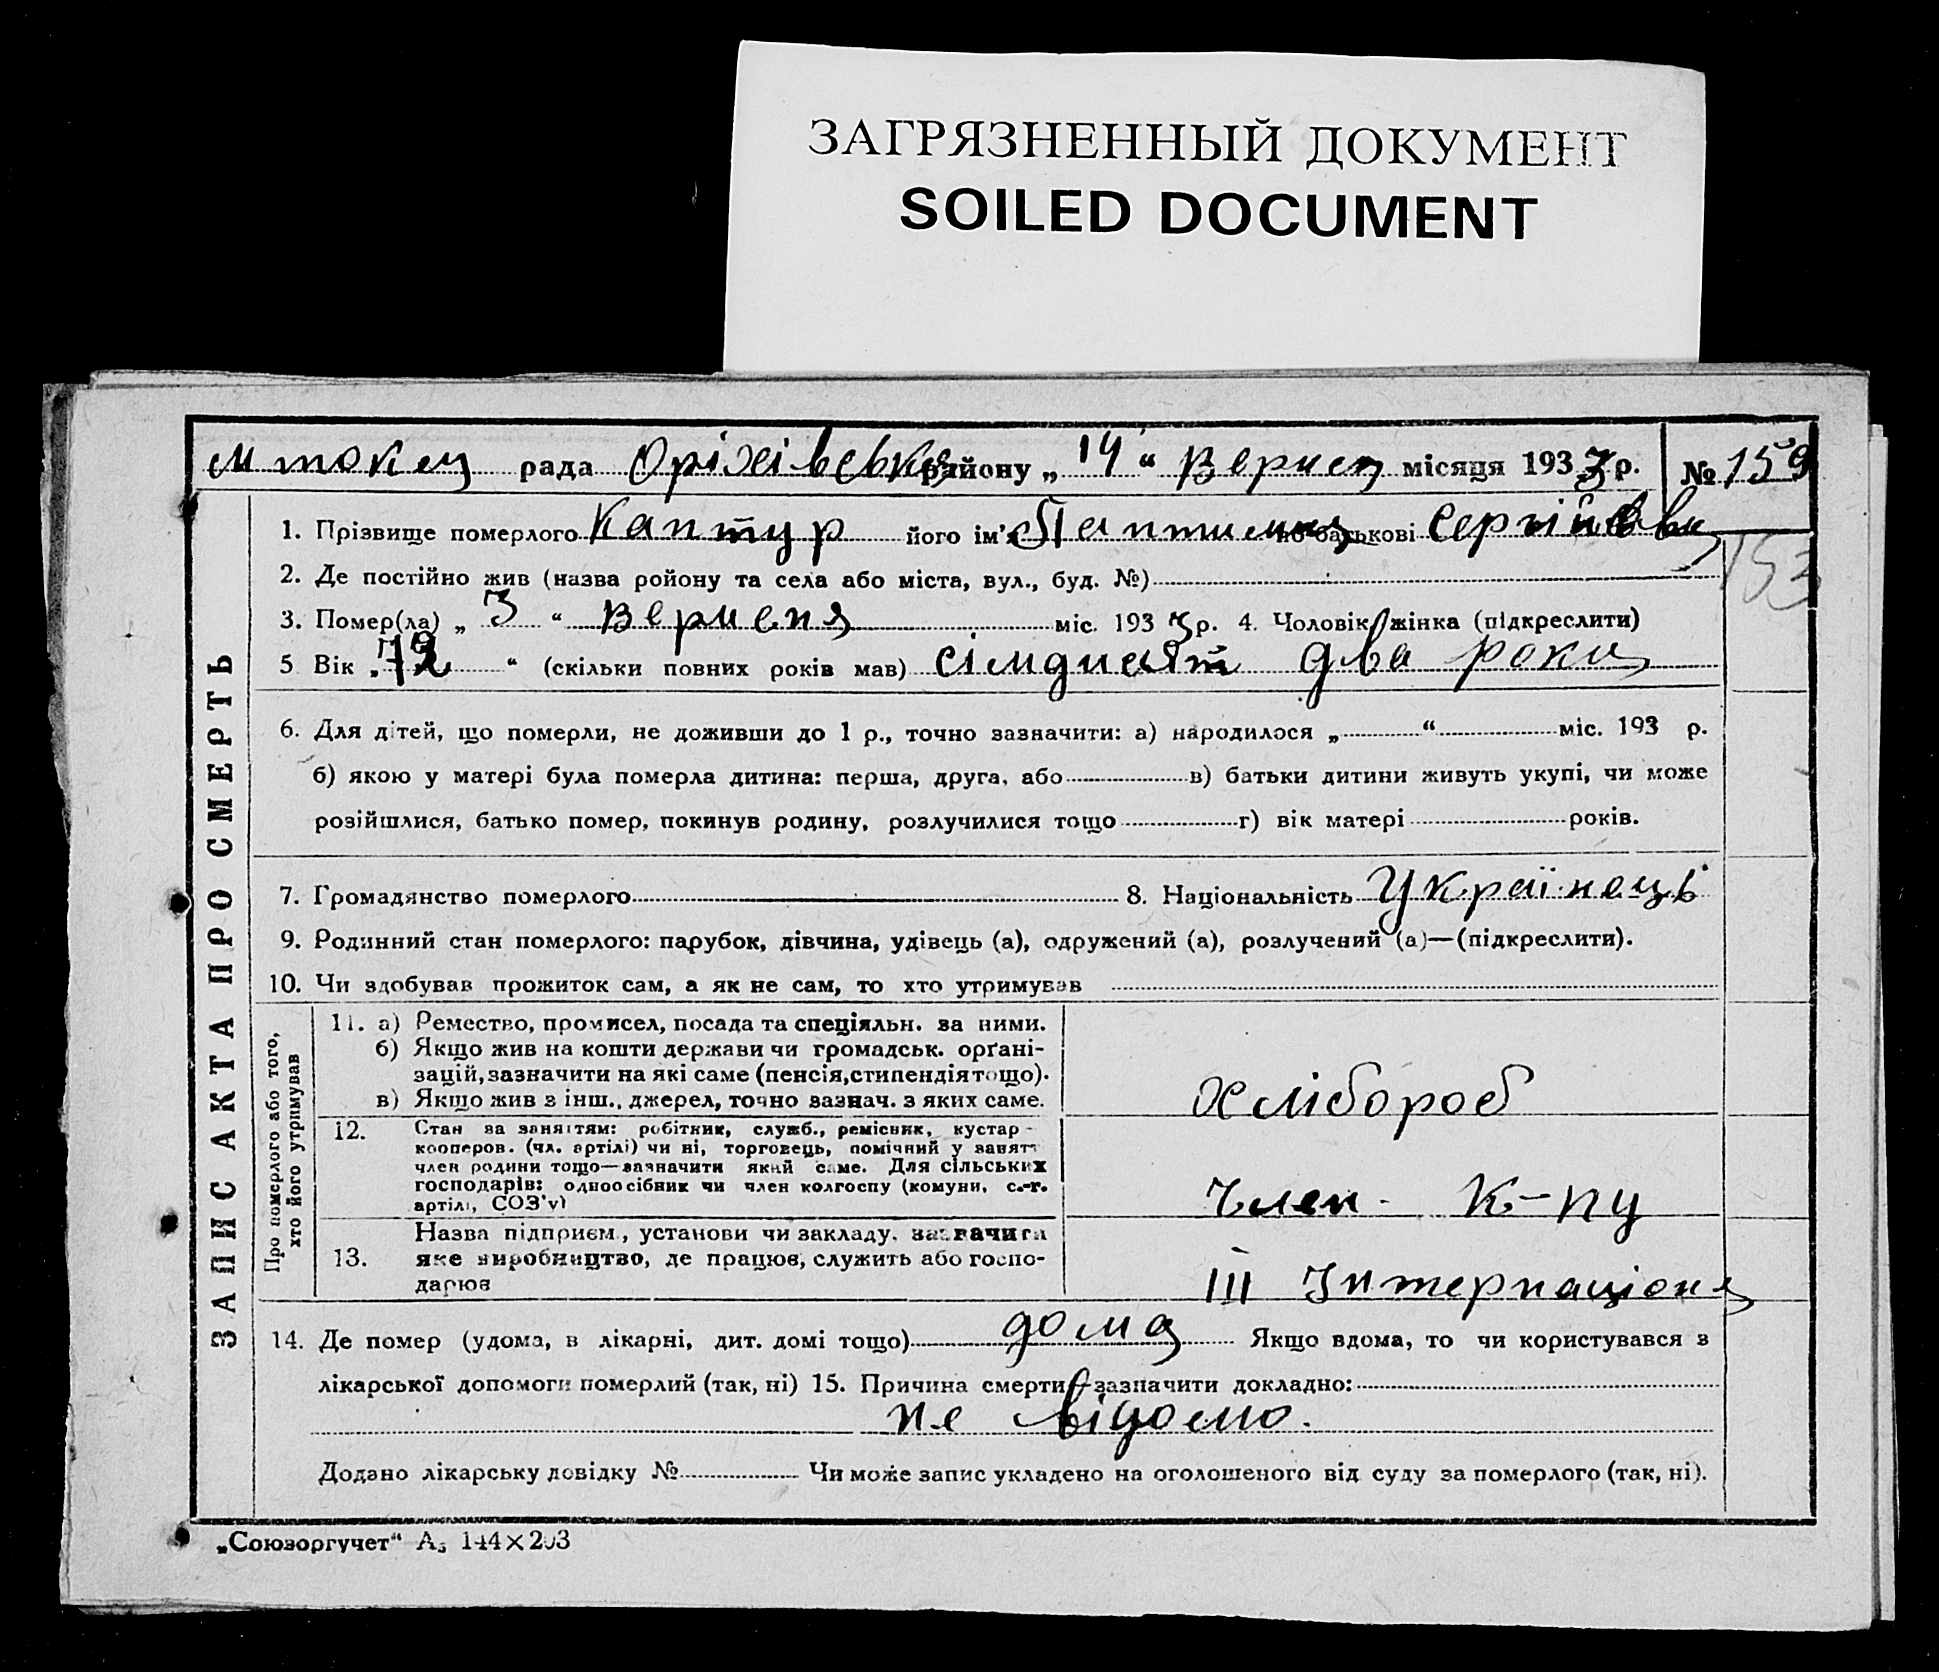 ЗАГРЯЗНЕННЫЙ ДОКУМЕНТ
SOILED DOCUMENT
М токец рада Оріхівське району „ 14 “ Вернец місяця 1933 р. № 159
153
ЗАПИС АКТА ПРО СМЕРТЬ
1. Прізвище померлого Каптур його ім'я по батькові
2. Де постійно жив (назва ройону та села або міста, вул., буд. №)
3. Помер(ла) „ 3 “ верненя міс. 193 3 р. 4. Чоловік, жінка (підкреслити)
5 Вік „ 72 “ (скільки повних років мав) сімдисят два роки
6. Для дітей, що померли, не доживши до 1 р., точно зазначити: а) народилося „ “ міс. 193 р.
б) якою у матері була померла дитина: перша, друга, або в) батьки дитини живуть укупі, чи може
розійшлися, батько помер, покинув родину, розлучилися тощо г) вік матері років.
7. Громадянство померлого 8. Національність Українець
9. Родинний стан померлого: парубок, дівчина, удівець (а), одружений (а), розлучений (а)—(підкреслити).
10. Чи здобував прожиток сам, а як не сам, то хто утримував
Про померлого або того,
хто його утримував
11. а) Ремество, промисел, посада та спеціяльн. за ними.
б) Якщо жив на кошти держави чи громадськ. орґані-
зацій, зазначити на які саме (пенсія, стипендія тощо).
в) Якщо жив з інш., джерел, точно зазнач. з яких саме.
Хлібороб
12. Стан за заняттям: робітник, служб., ремісник, кустар -
кооперов. (чл. артілі) чи ні, торговець, помічний у занятт
член родини тощо—зазначити який саме. Для сільських
господарів: одноосібник чи член колгоспу (комуни, с.-г.
артілі, СОЗ'у)
Член - к-пу
13. Назва підприєм., установи чи закладу, зазначити
яке виробництво, де працює, служить або госпо-
дарює
III Інтернаціона
14. Де помер (удома, в лікарні, дит. домі тощо) дома Якщо вдома, то чи користувався з
лікарської допомоги померлий (так, ні) 15. Причина смерти—зазначити докладно:
не відомо.
Додано лікарську довідку № Чи може запис укладено на оголошеного від суду за померлого (так, ні).
„Союзоргучет“ А₅ 144×203